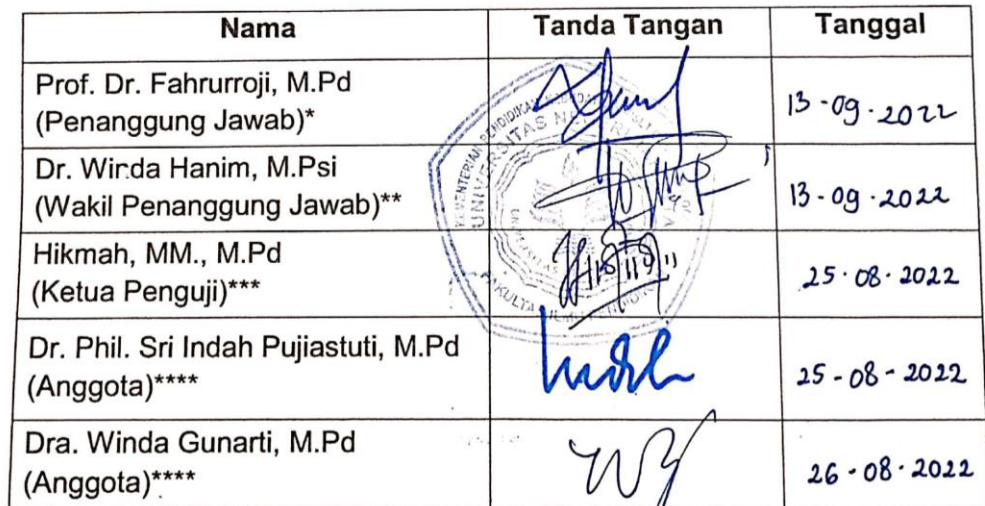 Nama Tanda Tangan Tanggal
Prof. Dr. Fahrurroji, M.Pd
(Penanggung Jawab)*
13-09-2022
Dr. Wirda Hanim, M.Psi
(Wakil Penanggung Jawab)**
13-09-2022
Hikmah, MM., M.Pd
(Ketua Penguji)***
25-08-2022
Dr. Phil. Sri Indah Pujiastuti, M.Pd
(Anggota)****
25-08-2022
Dra. Winda Gunarti, M.Pd
(Anggota)****
26-08-2022
UNIVERSITAS NEGERI